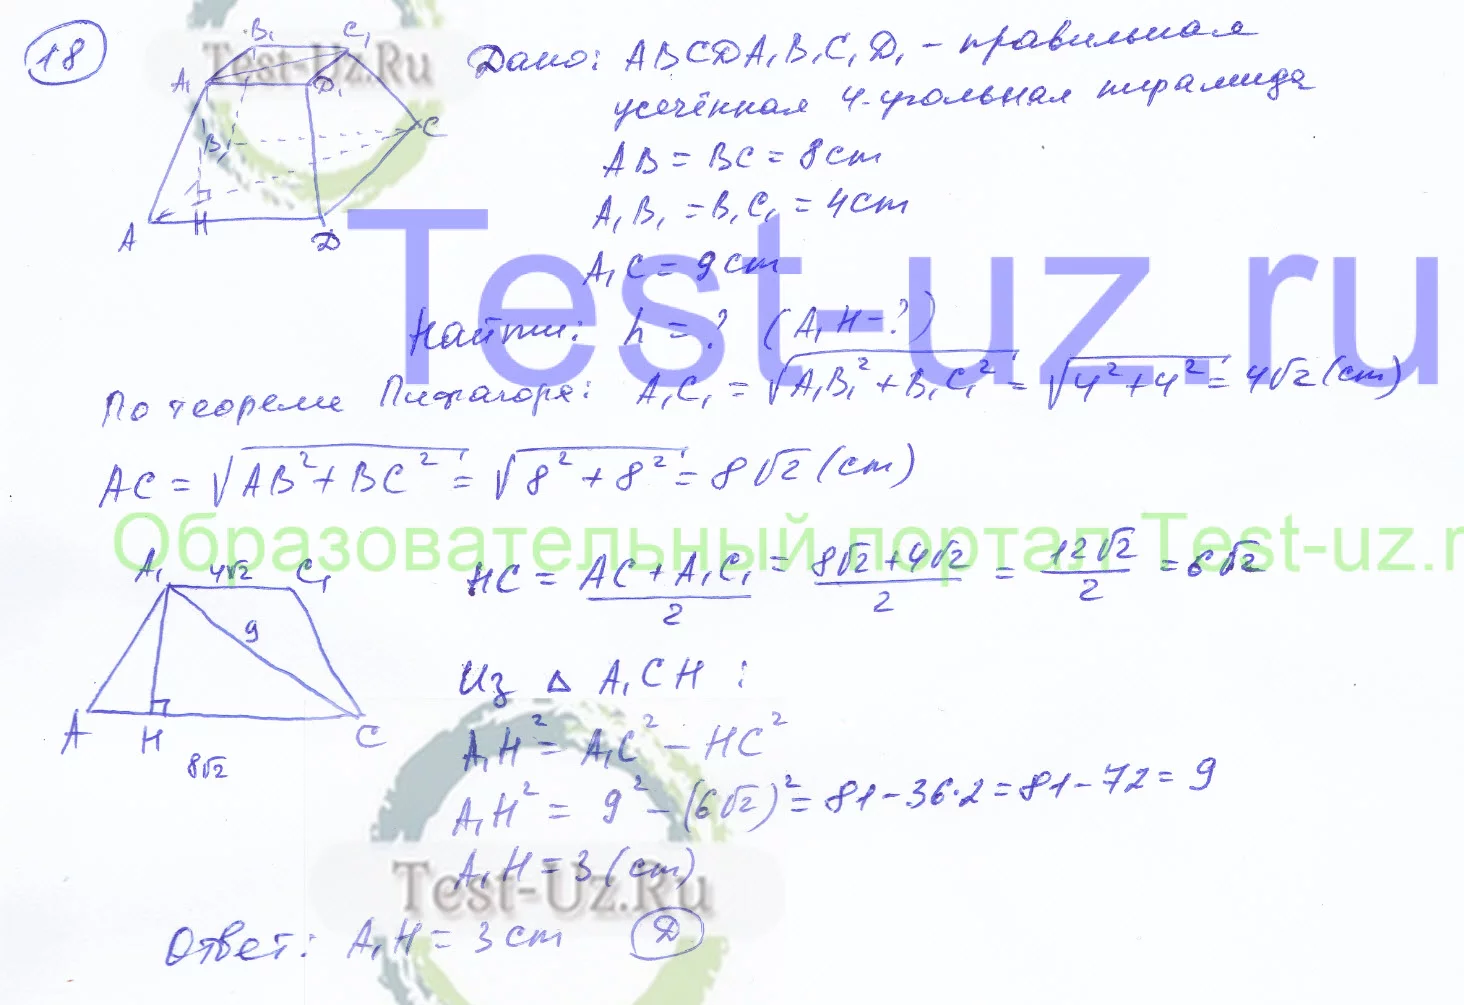 18
B₁ C₁
A₁ D₁
B₁ C
A H D
Test-Uz.Ru
Дано: ABCDA₁B₁C₁D₁ – правильная
усечённая 4-угольная пирамида
AB = BC = 8 cm
A₁B₁ = B₁C₁ = 4 cm
A₁C = 9 cm
Test-uz.ru
Найти: h = ? (A₁H – ?)
По теореме Пифагора: A₁C₁ = √(A₁B₁² + B₁C₁²) = √(4² + 4²) = 4√2 (cm)
AC = √(AB² + BC²) = √(8² + 8²) = 8√2 (cm)
Образовательный портал Test-uz.r
A₁ 4√2 C₁
9
A H C
8√2
HC = (AC + A₁C₁)/2 = (8√2 + 4√2)/2 = 12√2/2 = 6√2
Из Δ A₁CH :
A₁H² = A₁C² – HC²
A₁H² = 9² – (6√2)² = 81 – 36·2 = 81 – 72 = 9
A₁H = 3 (cm)
Test-Uz.Ru
Ответ: A₁H = 3 cm Д